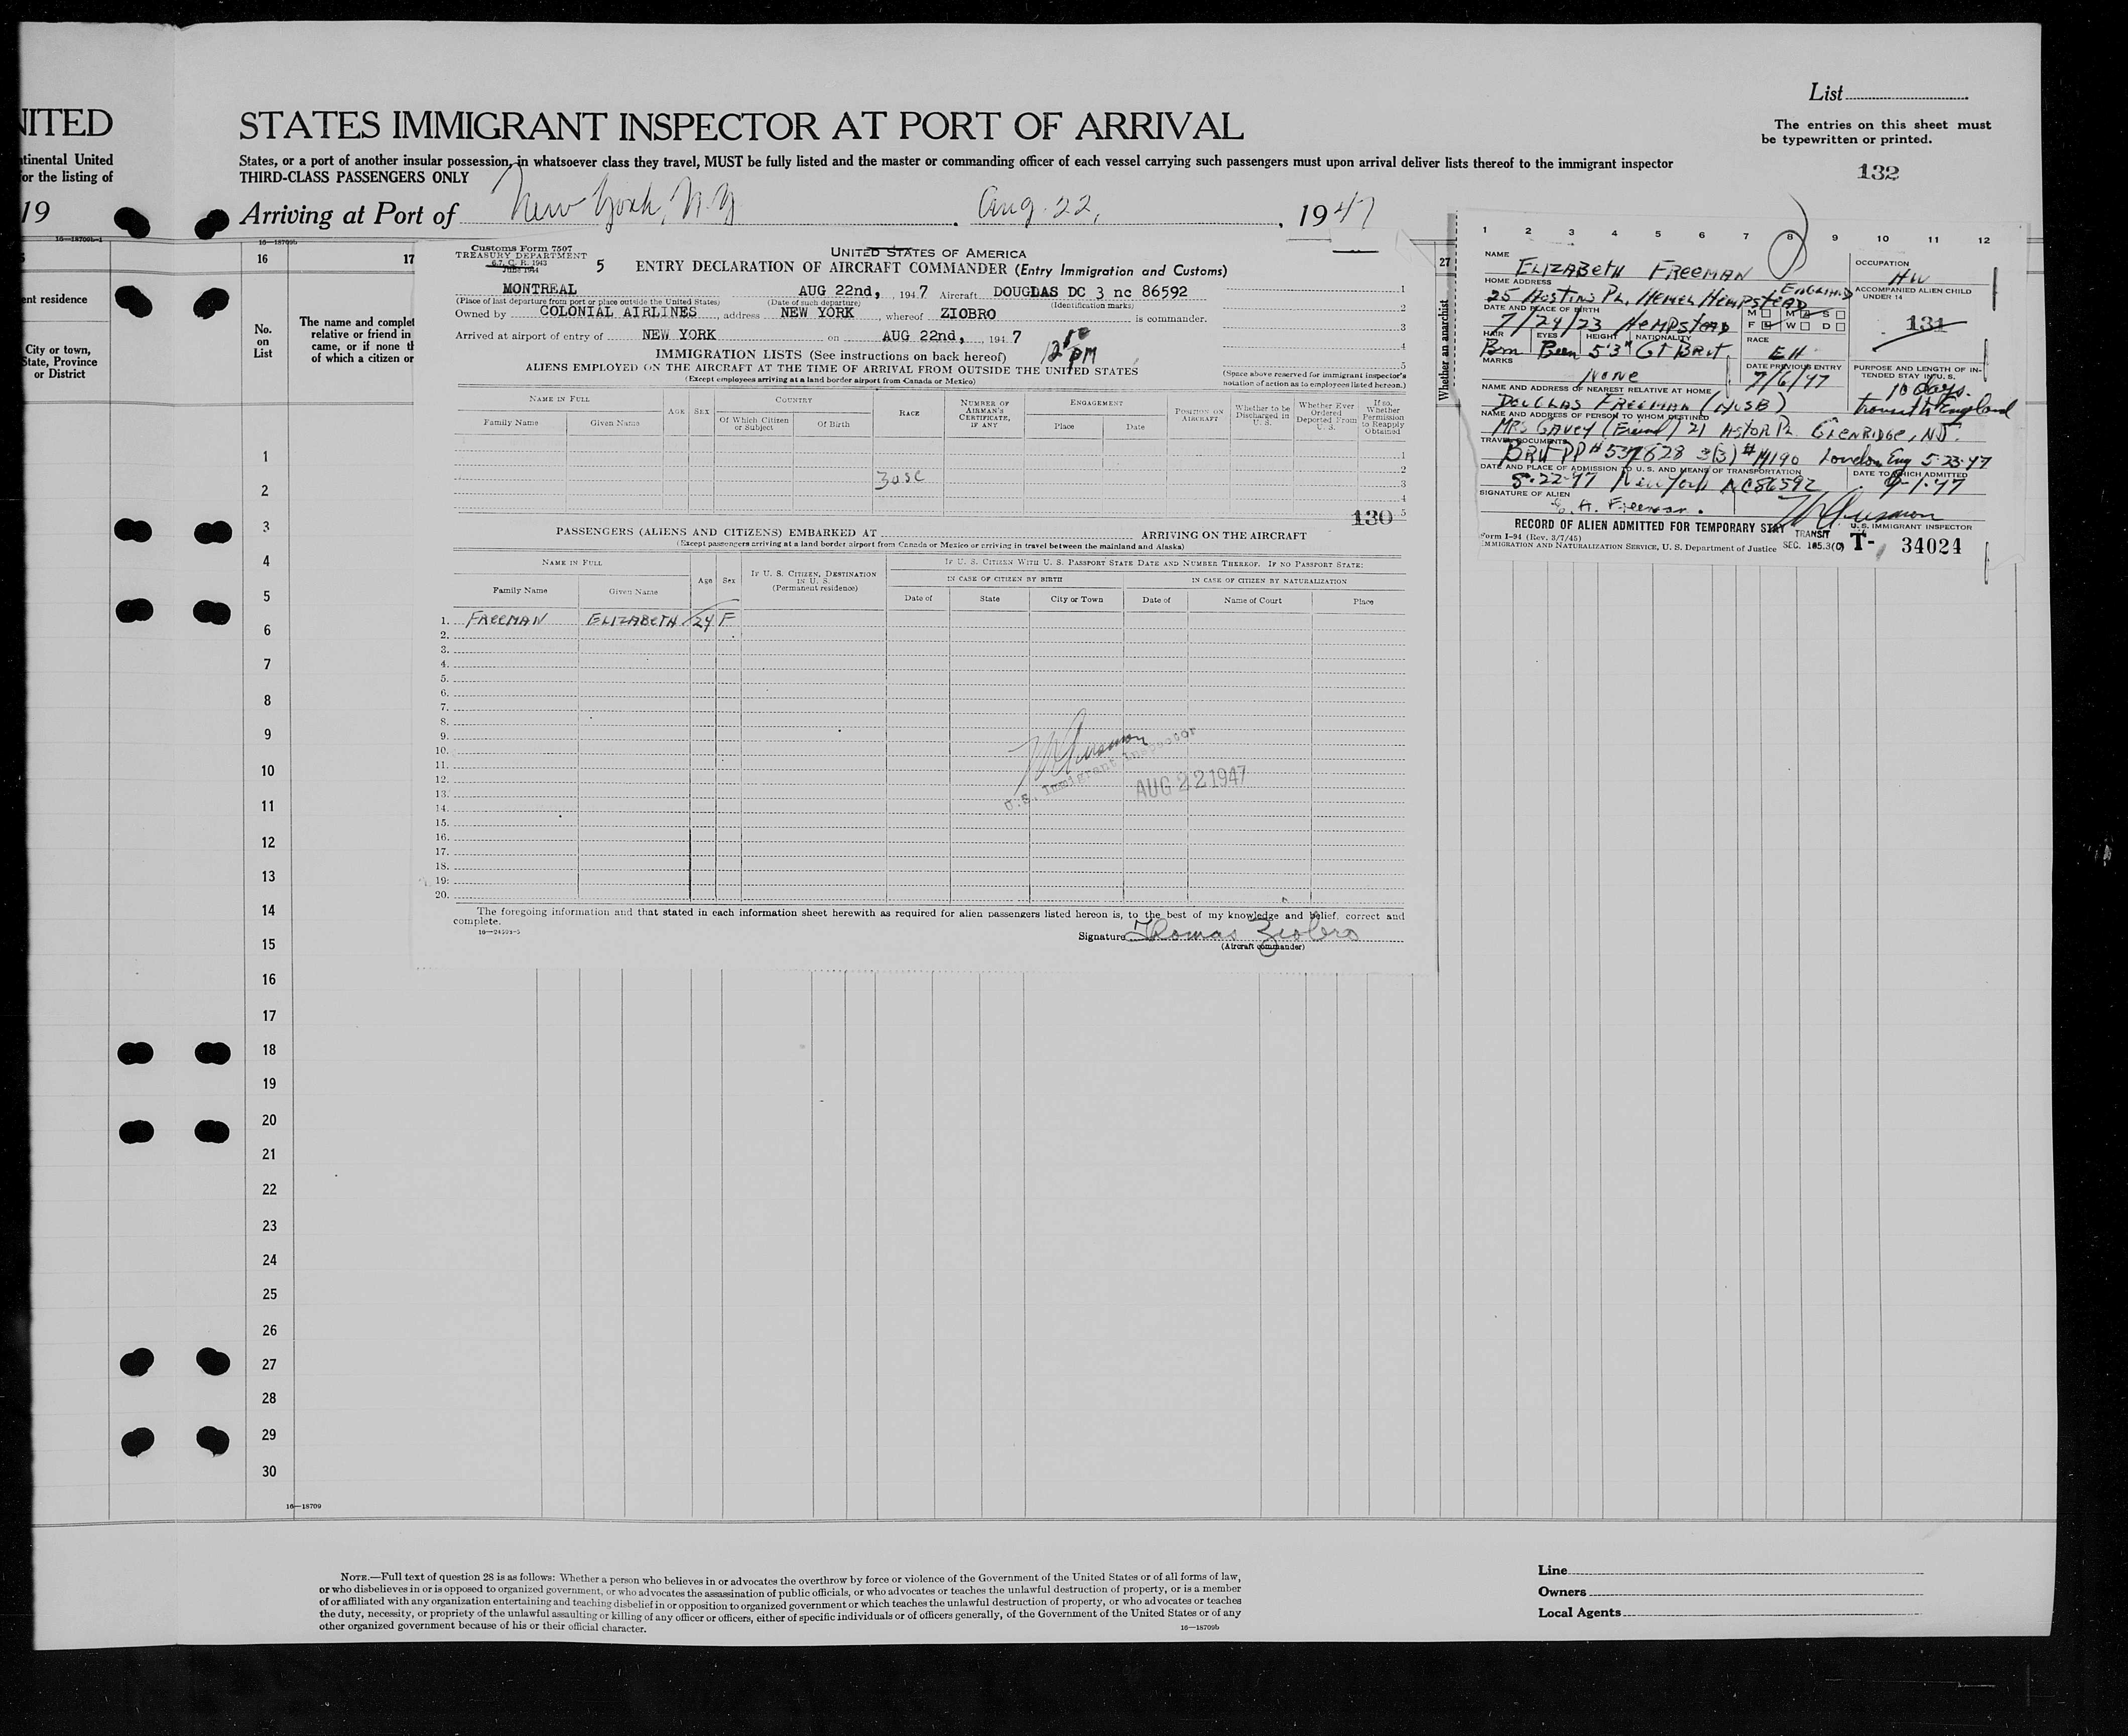 NITED
tinental United
or the listing of
19
16—18709b-1
ent residence
City or town,
State, Province
or District
List
STATES IMMIGRANT INSPECTOR AT PORT OF ARRIVAL
The entries on this sheet must
be typewritten or printed.
States, or a port of another insular possession, in whatsoever class they travel, MUST be fully listed and the master or commanding officer of each vessel carrying such passengers must upon arrival deliver lists thereof to the immigrant inspector
THIRD-CLASS PASSENGERS ONLY
132
Arriving at Port of New York, N.Y. Aug. 22, 1947
16—18709b
16 17 27
No.
on
List
The name and complet
relative or friend in
came, or if none th
of which a citizen or
Whether an anarchist
Customs Form 7507
TREASURY DEPARTMENT
6.7, C. R. 1943
June 1944
5
UNITED STATES OF AMERICA
ENTRY DECLARATION OF AIRCRAFT COMMANDER (Entry Immigration and Customs)
MONTREAL AUG 22nd, , 1947 Aircraft DOUGLAS DC 3 nc 86592
(Place of last departure from port or place outside the United States) (Date of such departure) (Identification marks)
Owned by COLONIAL AIRLINES , address NEW YORK , whereof ZIOBRO is commander.
Arrived at airport of entry of NEW YORK on AUG 22nd, , 1947
12 50 PM
IMMIGRATION LISTS (See instructions on back hereof)
ALIENS EMPLOYED ON THE AIRCRAFT AT THE TIME OF ARRIVAL FROM OUTSIDE THE UNITED STATES
(Except employees arriving at a land border airport from Canada or Mexico)
1
2
3
4
5
(Space above reserved for immigrant inspector's
notation of action as to employees listed hereon.)
NAME IN FULL
Family Name Given Name
AGE SEX
COUNTRY
Of Which Citizen or Subject Of Birth
RACE
NUMBER OF AIRMAN'S CERTIFICATE, IF ANY
ENGAGEMENT
Place Date
POSITION ON AIRCRAFT
Whether to be Discharged in U. S.
Whether Ever Ordered Deported From U. S.
If so, Whether Permission to Reapply Obtained
1
2
3
4
5
30SC
130
PASSENGERS (ALIENS AND CITIZENS) EMBARKED AT ARRIVING ON THE AIRCRAFT
(Except passengers arriving at a land border airport from Canada or Mexico or arriving in travel between the mainland and Alaska)
NAME IN FULL
Family Name Given Name
Age Sex
IF U. S. CITIZEN, DESTINATION IN U. S.
(Permanent residence)
IF U. S. CITIZEN WITH U. S. PASSPORT STATE DATE AND NUMBER THEREOF. IF NO PASSPORT STATE:
IN CASE OF CITIZEN BY BIRTH IN CASE OF CITIZEN BY NATURALIZATION
Date of State City or Town Date of Name of Court Place
1. FREEMAN ELIZABETH 24 F
2.
3.
4.
5.
6.
7.
8.
9.
10.
11.
12.
13.
14.
15.
16.
17.
18.
19.
20.
U.S. Immigrant Inspector
AUG 22 1947
The foregoing information and that stated in each information sheet herewith as required for alien passengers listed hereon is, to the best of my knowledge and belief, correct and
complete.
16—24593-5
Signature Thomas Ziobro
(Aircraft commander)
1 2 3 4 5 6 7 8 9 10 11 12
NAME
ELIZABETH FREEMAN
OCCUPATION
HW
HOME ADDRESS
25 Hostins Pl, Hemel Hempstead ENGLAND
ACCOMPANIED ALIEN CHILD
UNDER 14
131
DATE AND PLACE OF BIRTH
7/24/23 Hempstead
M M S
F W D
HAIR EYES HEIGHT NATIONALITY
Brn 5'3" Gt Brit.
RACE
EH
MARKS
None
DATE PREVIOUS ENTRY
7/6/47
PURPOSE AND LENGTH OF IN-
TENDED STAY IN U. S.
10 days.
transit to England
NAME AND ADDRESS OF NEAREST RELATIVE AT HOME
DOUGLAS FREEMAN (HUSB)
NAME AND ADDRESS OF PERSON TO WHOM DESTINED
MRS GAVEY (Friend) 21 Astor Pl. GLENRIDGE, NJ.
TRAVEL DOCUMENTS
Brit PP # 537628 3(3) # 14190 London Eng 5-23-47
DATE AND PLACE OF ADMISSION TO U. S. AND MEANS OF TRANSPORTATION
8-22-47 New York NC86592
DATE TO WHICH ADMITTED
9-1-47
SIGNATURE OF ALIEN
E. H. Freeman.
RECORD OF ALIEN ADMITTED FOR TEMPORARY STAY
U. S. IMMIGRANT INSPECTOR
Form I-94 (Rev. 3/7/45)
IMMIGRATION AND NATURALIZATION SERVICE, U. S. Department of Justice
TRANSIT
SEC. 105.3(C) T- 34024
1
2
3
4
5
6
7
8
9
10
11
12
13
14
15
16
17
18
19
20
21
22
23
24
25
26
27
28
29
30
16—18709
NOTE.—Full text of question 28 is as follows: Whether a person who believes in or advocates the overthrow by force or violence of the Government of the United States or of all forms of law,
or who disbelieves in or is opposed to organized government, or who advocates the assassination of public officials, or who advocates or teaches the unlawful destruction of property, or is a member
of or affiliated with any organization entertaining and teaching disbelief in or opposition to organized government or which teaches the unlawful destruction of property, or who advocates or teaches
the duty, necessity, or propriety of the unlawful assaulting or killing of any officer or officers, either of specific individuals or of officers generally, of the Government of the United States or of any
other organized government because of his or their official character.
16—18709b
Line
Owners
Local Agents